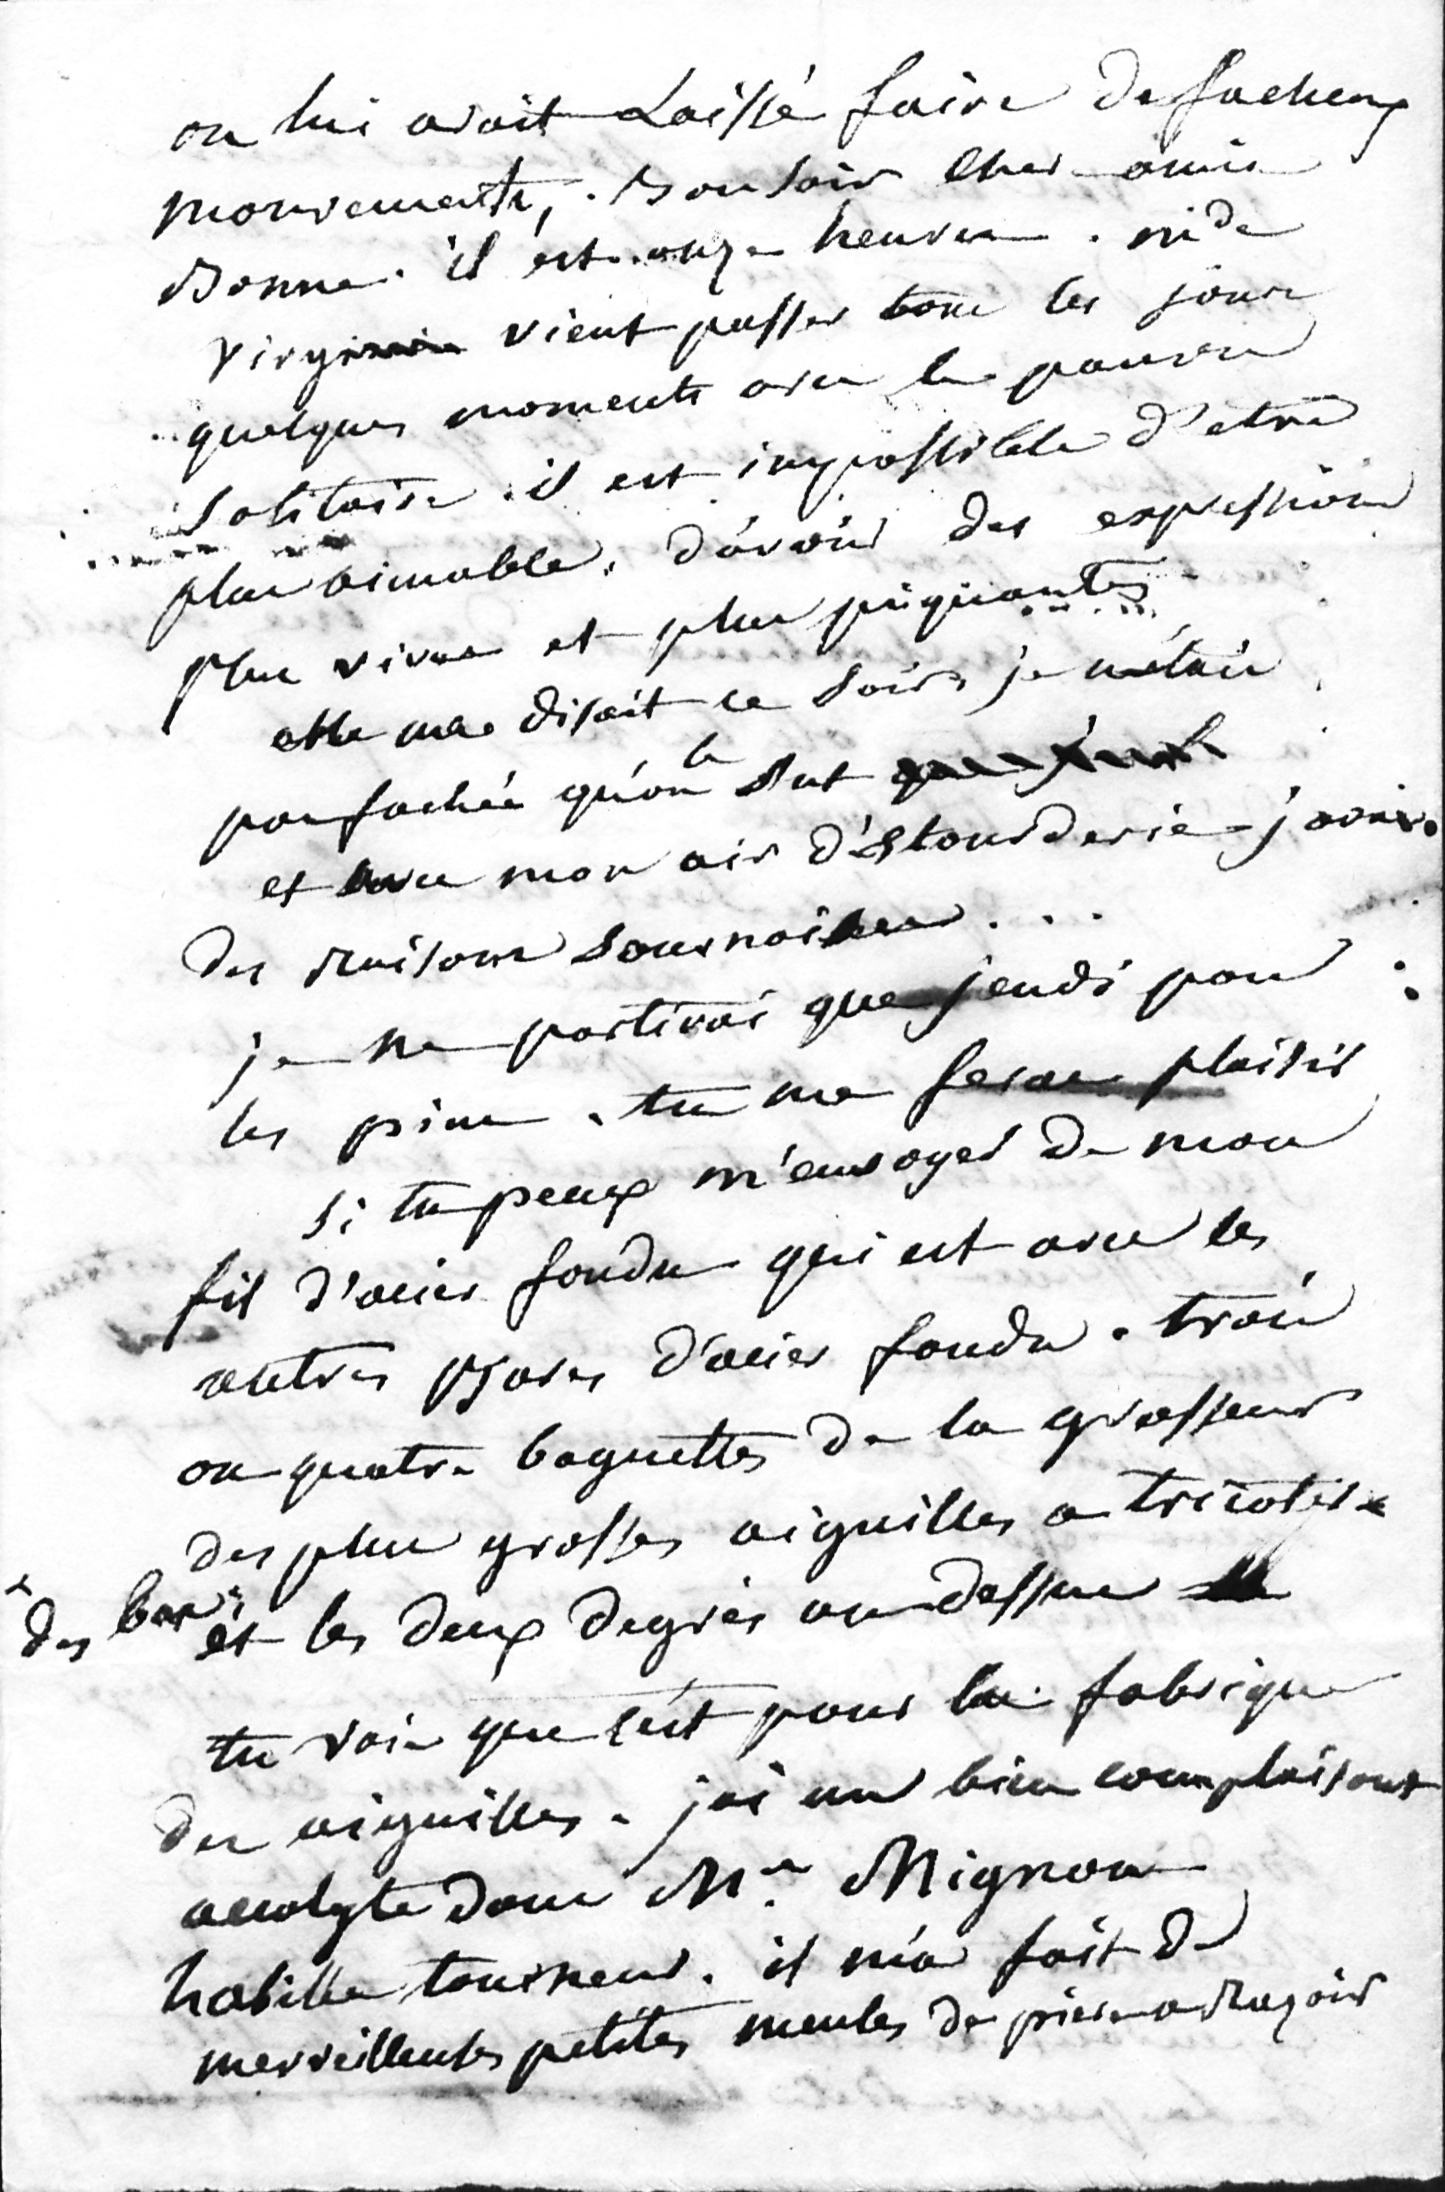 on lui avoit Laissé faire de facheux
mouvements, . Bon soir cher amie
Bonne. il est onze heures . md
virginie vient passer tous les jours
quelques moments avec le pauvre
solitaire . il est impossible d'etre
plus aimable, d'avoir des expressions
plus vives et plus piquantes
elle me disait ce soir, je n'étais
pas fachée qu'on le sut
et avec mon air d'étourderie j'avais
des raisons sournoises . . .
je ne partirai que jeudi pour
les pins . tu me feras plaisir
si tu peux m'envoyer de mon
fil d'acier fondu qui est avec les
autres Bares d'acier fondu . trois
ou quatre baguettes de la grosseur
des plus grosses aiguilles a tricoter
des bas et les deux degrés au dessus
tu vois que c'est pour la fabrique
des aiguilles . jai un bien complaisant
acolyte dans Mr. Mignon
habille tourneur . il m'a fait de
merveilleuses petites meules de pierre a razoir